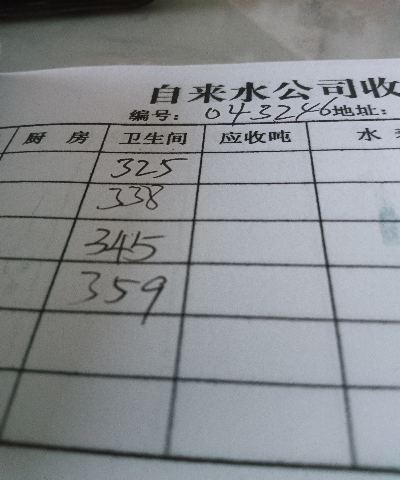 自来水公司收
编号: 043246 地址:
厨房 卫生间 应收吨 水
325
338
345
359